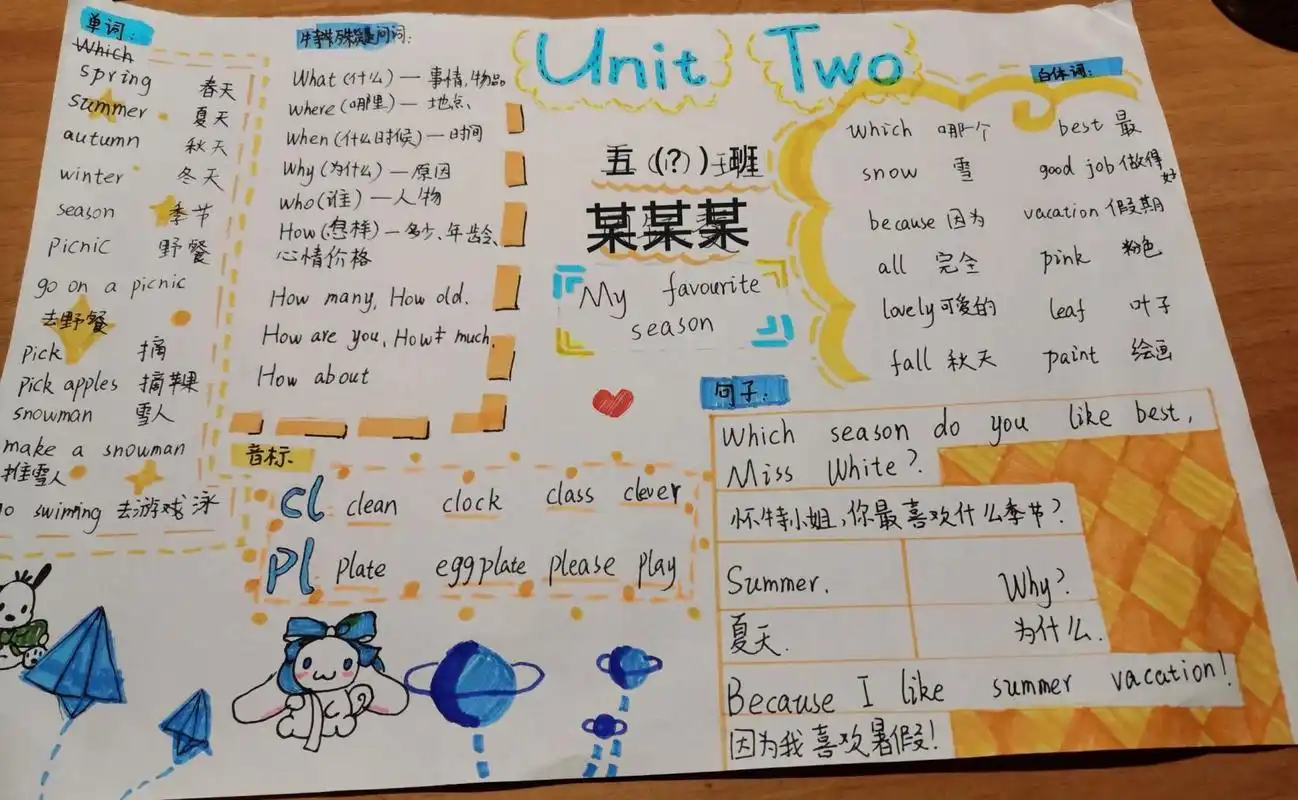 单词:
Which
spring 春天
summer 夏天
autumn 秋天
winter 冬天
season 季节
picnic 野餐
go on a picnic
去野餐
pick 摘
pick apples 摘苹果
snowman 雪人
make a snowman
堆雪人
go swimming 去游戏泳
特殊疑问词:
What (什么) — 事情,物品
where (哪里) — 地点、
when (什么时候) — 时间
Why (为什么) — 原因
who (谁) — 人物
How (怎样) — 多少、年龄、
心情价格
How many, How old.
How are you, How much,
How about
音标
cl clean clock class clever
Pl plate eggplate please play
Unit Two
五 (?) 班
某某某
My favourite
season
白体词:
which 哪个 best 最
snow 雪 good job 做得好
because 因为 vacation 假期
all 完全 pink 粉色
lovely 可爱的 leaf 叶子
fall 秋天 paint 绘画
句子:
Which season do you like best,
Miss White?
怀特小姐,你最喜欢什么季节?
Summer. Why?
夏天. 为什么.
Because I like summer vacation!
因为我喜欢暑假!